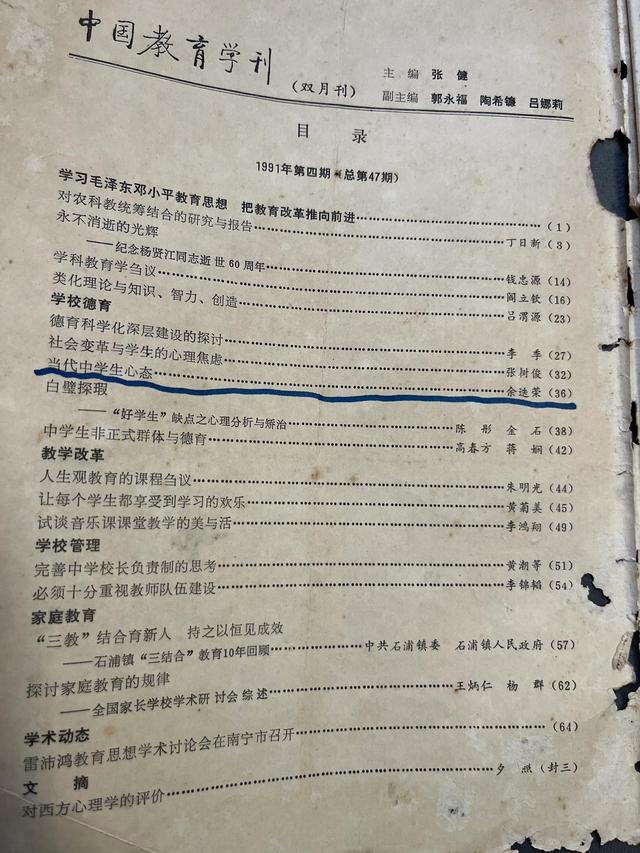 中国教育学刊
(双月刊)
主编 张健
副主编 郭永福 陶希镰 吕娜莉
目录
1991年第四期 (总第47期)
学习毛泽东邓小平教育思想 把教育改革推向前进 (1)
对农科教统筹结合的研究与报告 丁日新 (3)
永不消逝的光辉
——纪念杨贤江同志逝世60周年 钱忠源 (14)
学科教育学刍议 阎立钦 (16)
类化理论与知识、智力、创造 吕渭源 (23)
学校德育
德育科学化深层建设的探讨 李季 (27)
社会变革与学生的心理焦虑 张树俊 (32)
当代中学生心态 余逸荣 (36)
白璧探瑕
——“好学生”缺点之心理分析与矫治 陈彤 金石 (38)
中学生非正式群体与德育 高春方 蒋娴 (42)
教学改革
人生观教育的课程刍议 朱明光 (44)
让每个学生都享受到学习的欢乐 黄菊美 (45)
试谈音乐课课堂教学的美与活 李鸿翔 (49)
学校管理
完善中学校长负责制的思考 黄潮等 (51)
必须十分重视教师队伍建设 李锦韬 (54)
家庭教育
“三教”结合育新人 持之以恒见成效
——石浦镇“三结合”教育10年回顾 中共石浦镇委 石浦镇人民政府 (57)
探讨家庭教育的规律
——全国家长学校学术研讨会综述 王炳仁 杨群 (62)
学术动态
雷沛鸿教育思想学术讨论会在南宁市召开 (64)
文摘
对西方心理学的评价 夕照 (封三)